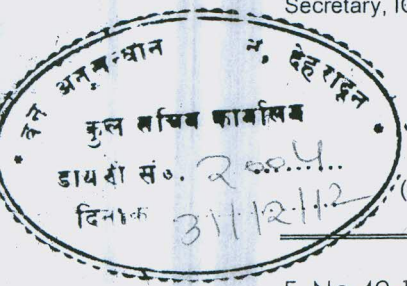 Secretary, IC
वन अनुसन्धान सं. देहरादून
कुल सचिव कार्यालय
डायरी सं०. 2004
दिनांक 31/12/12
(